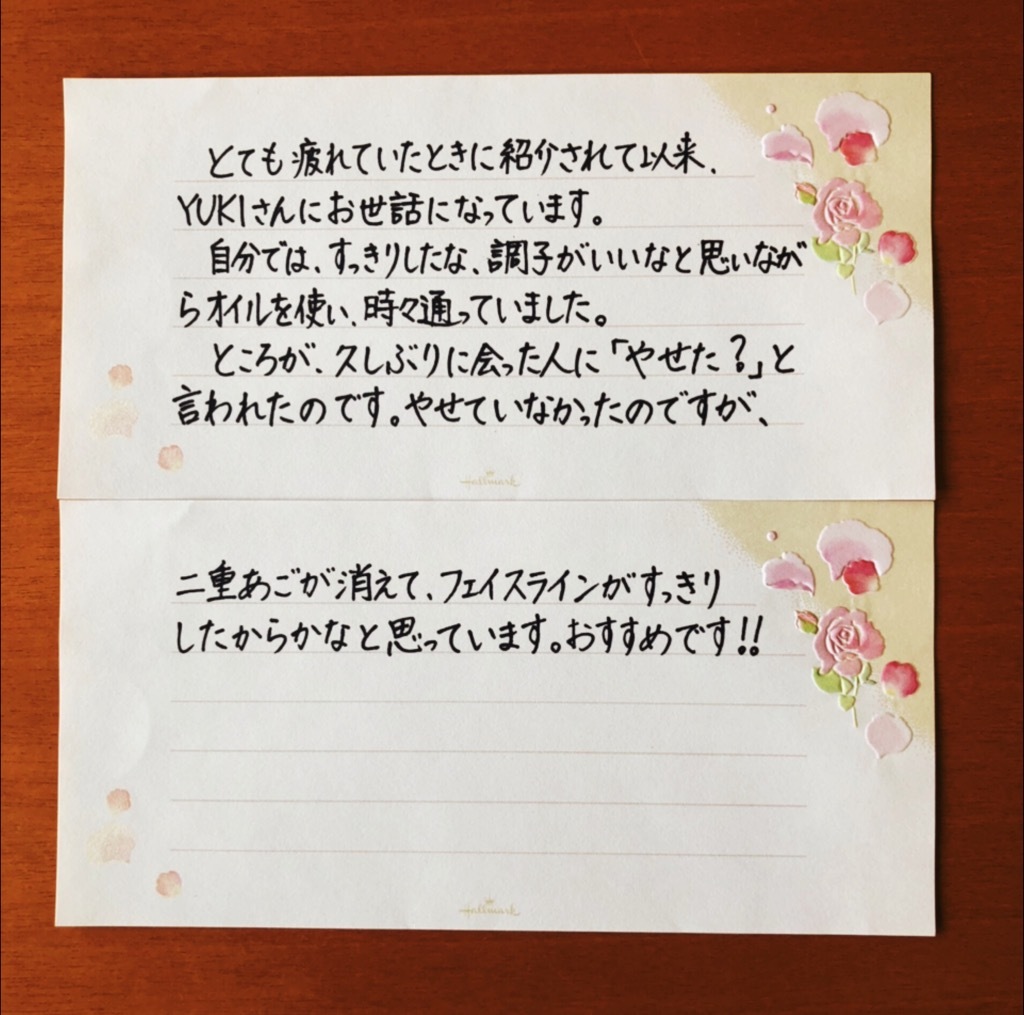 とても疲れていたときに紹介されて以来、
YUKIさんにお世話になっています。
自分では、すっきりしたな、調子がいいなと思いなが
らオイルを使い、時々通っていました。
ところが、久しぶりに会った人に「やせた?」と
言われたのです。やせていなかったのですが、
Hallmark
二重あごが消えて、フェイスラインがすっきり
したからかなと思っています。おすすめです!!
Hallmark